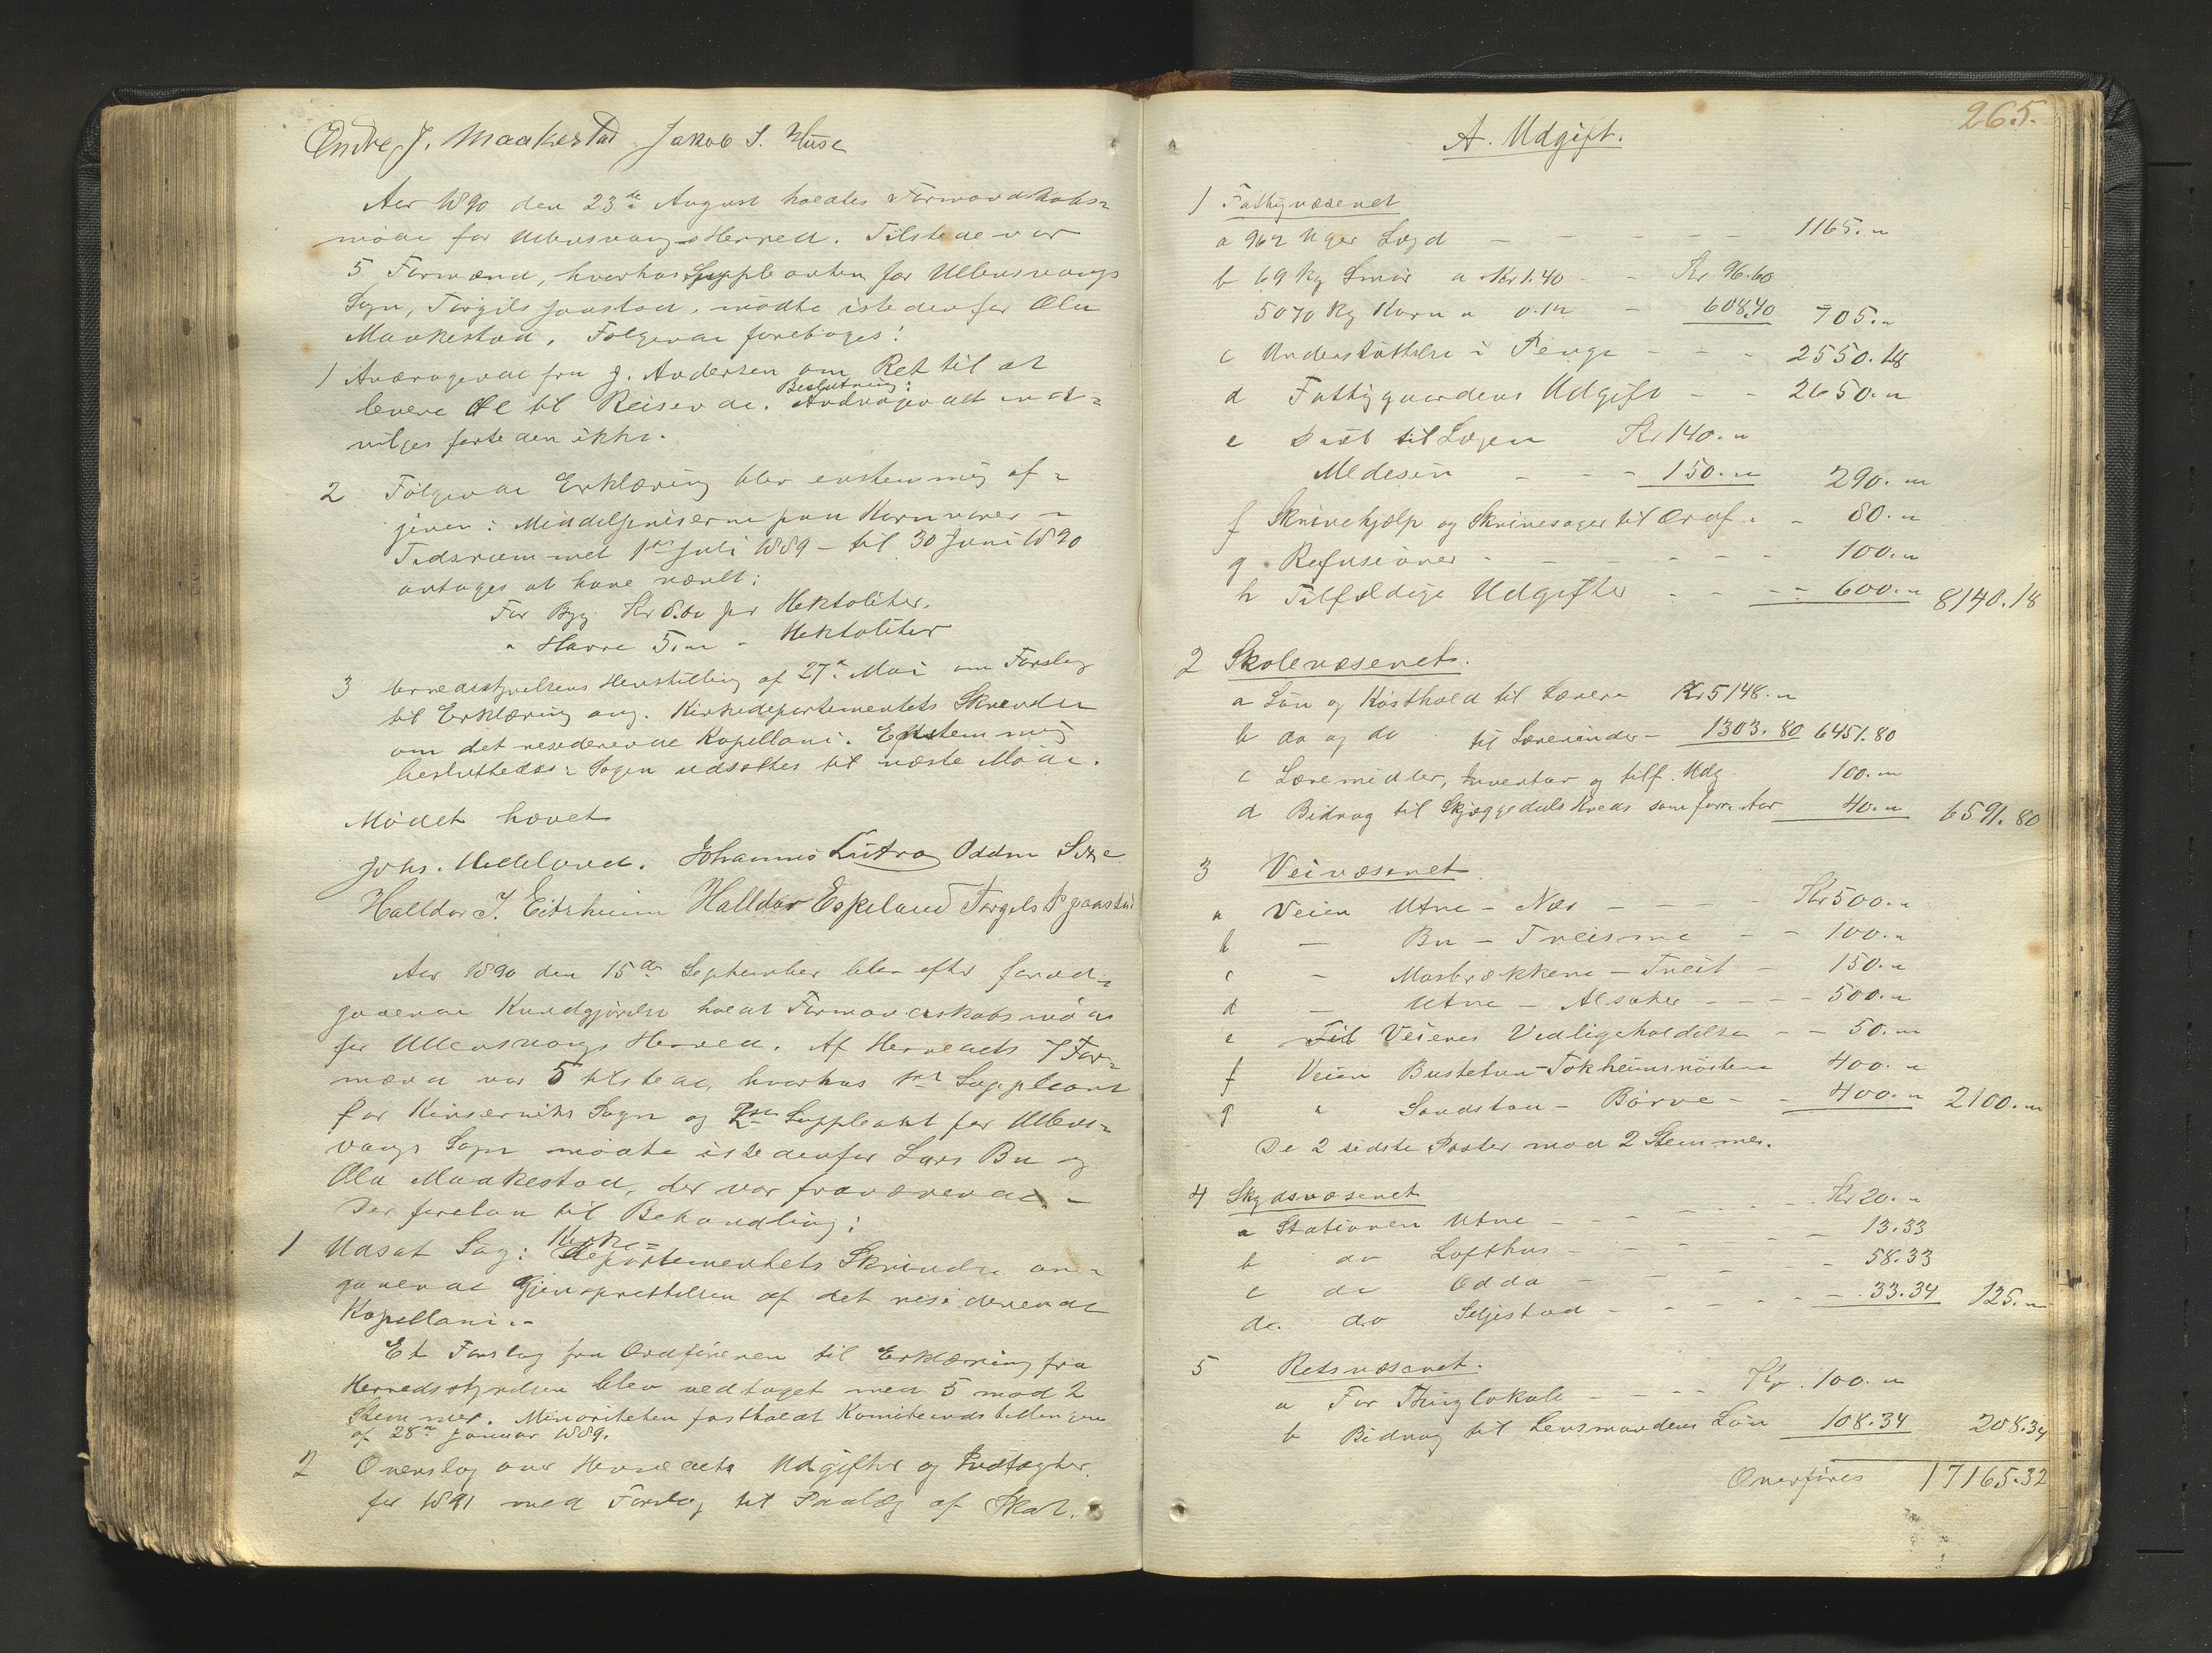 Endre J. Maakestad Jakob S. Huse
Aar 1890 den 23de August holdtes Formandskabs-
møde for Ullensvangs Herred. Tilstede var
5 Formænd, hvorhos Suppleanten for Ullensvangs
Sogn, Torgils Jaastad, mødte istedenfor Ola
Maakestad. Følgende foretoges:
1 Andragende fra J. Andersen om Ret til at
levere Øl til Reisende. Beslutning: Andragendet ind-
vilges fortiden ikke.
2 Følgende Erklæring blev enstemmig af-
given: Middelpriserne paa Kornvarer i
Tidsrummet 1ste Juli 1889 – til 30 Juni 1890
antages at have været:
For Byg Kr 8.00 pr Hektoliter.
" Havre 5.00 " Hektoliter
3 Herredsstyrelsens Henstilling af 27de Mai om Forslag
til Erklæring ang. Kirkedepartementets Skrivelse
om det residerende Kapellani. Enstemmig
besluttedes: Sagen udsættes til næste Møde.
Mødet hævet
Johs. Helleland. Johannes Lutro Oddm
Halldor J. Eitrheim Halldor Espeland Torgils P Jaastad
Aar 1890 den 15de September blev efter forud-
gaaende Kundgjørelse holdt Formandskabsmøde
for Ullensvangs Herred. Af Herredets 7 For-
mænd var 5 tilstede, hvorhos 1ste Suppleant
for Kinserviks Sogn og 2den Suppleant for Ullens-
vangs Sogn mødte istedenfor Lars Bu og
Ola Maakestad, der var fraværende –
Der forelaa til Behandling:
1 Udsat Sag: Kirke-departementets Skrivelse an-
gaaende Gjenoprettelsen af det residerende
Kapellani.–
Et Forslag fra Ordføreren til Erklæring fra
Herredsstyrelsen blev vedtaget med 5 mod 2
Stemmer. Minoriteten fastholdt Komiteindstillingen
af 28de Januar 1889.
2 Overslag over Herredets Udgifter og Indtægter
for 1891 med Forslag til Paalæg af Skat.
265.
A. Udgift.
1 Fattigvæsenet
a 962 Uger Lægd – – – – – 1165. "
b 69 kg Smør a Kr 1.40 – – Kr 96.60
5070 kg Korn a 0.12 – 608.40 705. "
c Understøttelse i Penge – – – 2550.18
d Fattiggaardens Udgift – – 2650. "
e Diæt til Lægen Kr 140. "
Medesin – – – 150. " 290. "
f Skrivehjælp og Skrivesager til Ordf. – 80. "
g Refusioner – – – – – 100. "
h Tilfældige Udgifter – – – – 600. " 8140.18
2 Skolevæsenet.
a Løn og Kosthold til Lærere Kr 5148. "
b do og do til Lærerinder – 1303.80 6451.80
c Læremidler, Inventar og tilf. Udg. 100. "
d Bidrag til Skjæggedals Kreds som forr. Aar 40. " 6591.80
3 Veivæsenet.
a Veien Utne – Næs – – – – Kr 500. "
b – Bu – Treisme – – 100. "
c – Mosbrækkene – Treit – 150. "
d – Utne – Alsaker – – – – 500. "
e Til Veienes Vedligeholdelse – – 50. "
f Veien Bustetun – Tokheimsnøstene 400. "
g " Sandstøa – Børve – – 400. " 2100. "
De 2 sidste Poster mod 2 Stemmer.
4 Skydsvæsenet
a Stationen Utne – – – – – Kr 20. "
b do Lofthus – – – – – 13.33
c do Odda – – – – 58.33
d. do Seljestad – – – – – – 33.34 125. "
5 Retsvæsenet.
a For Thinglokale – – – – Kr. 100. "
b Bidrag til Lensmandens Løn 108.34 208.34
Overføres 17165.32